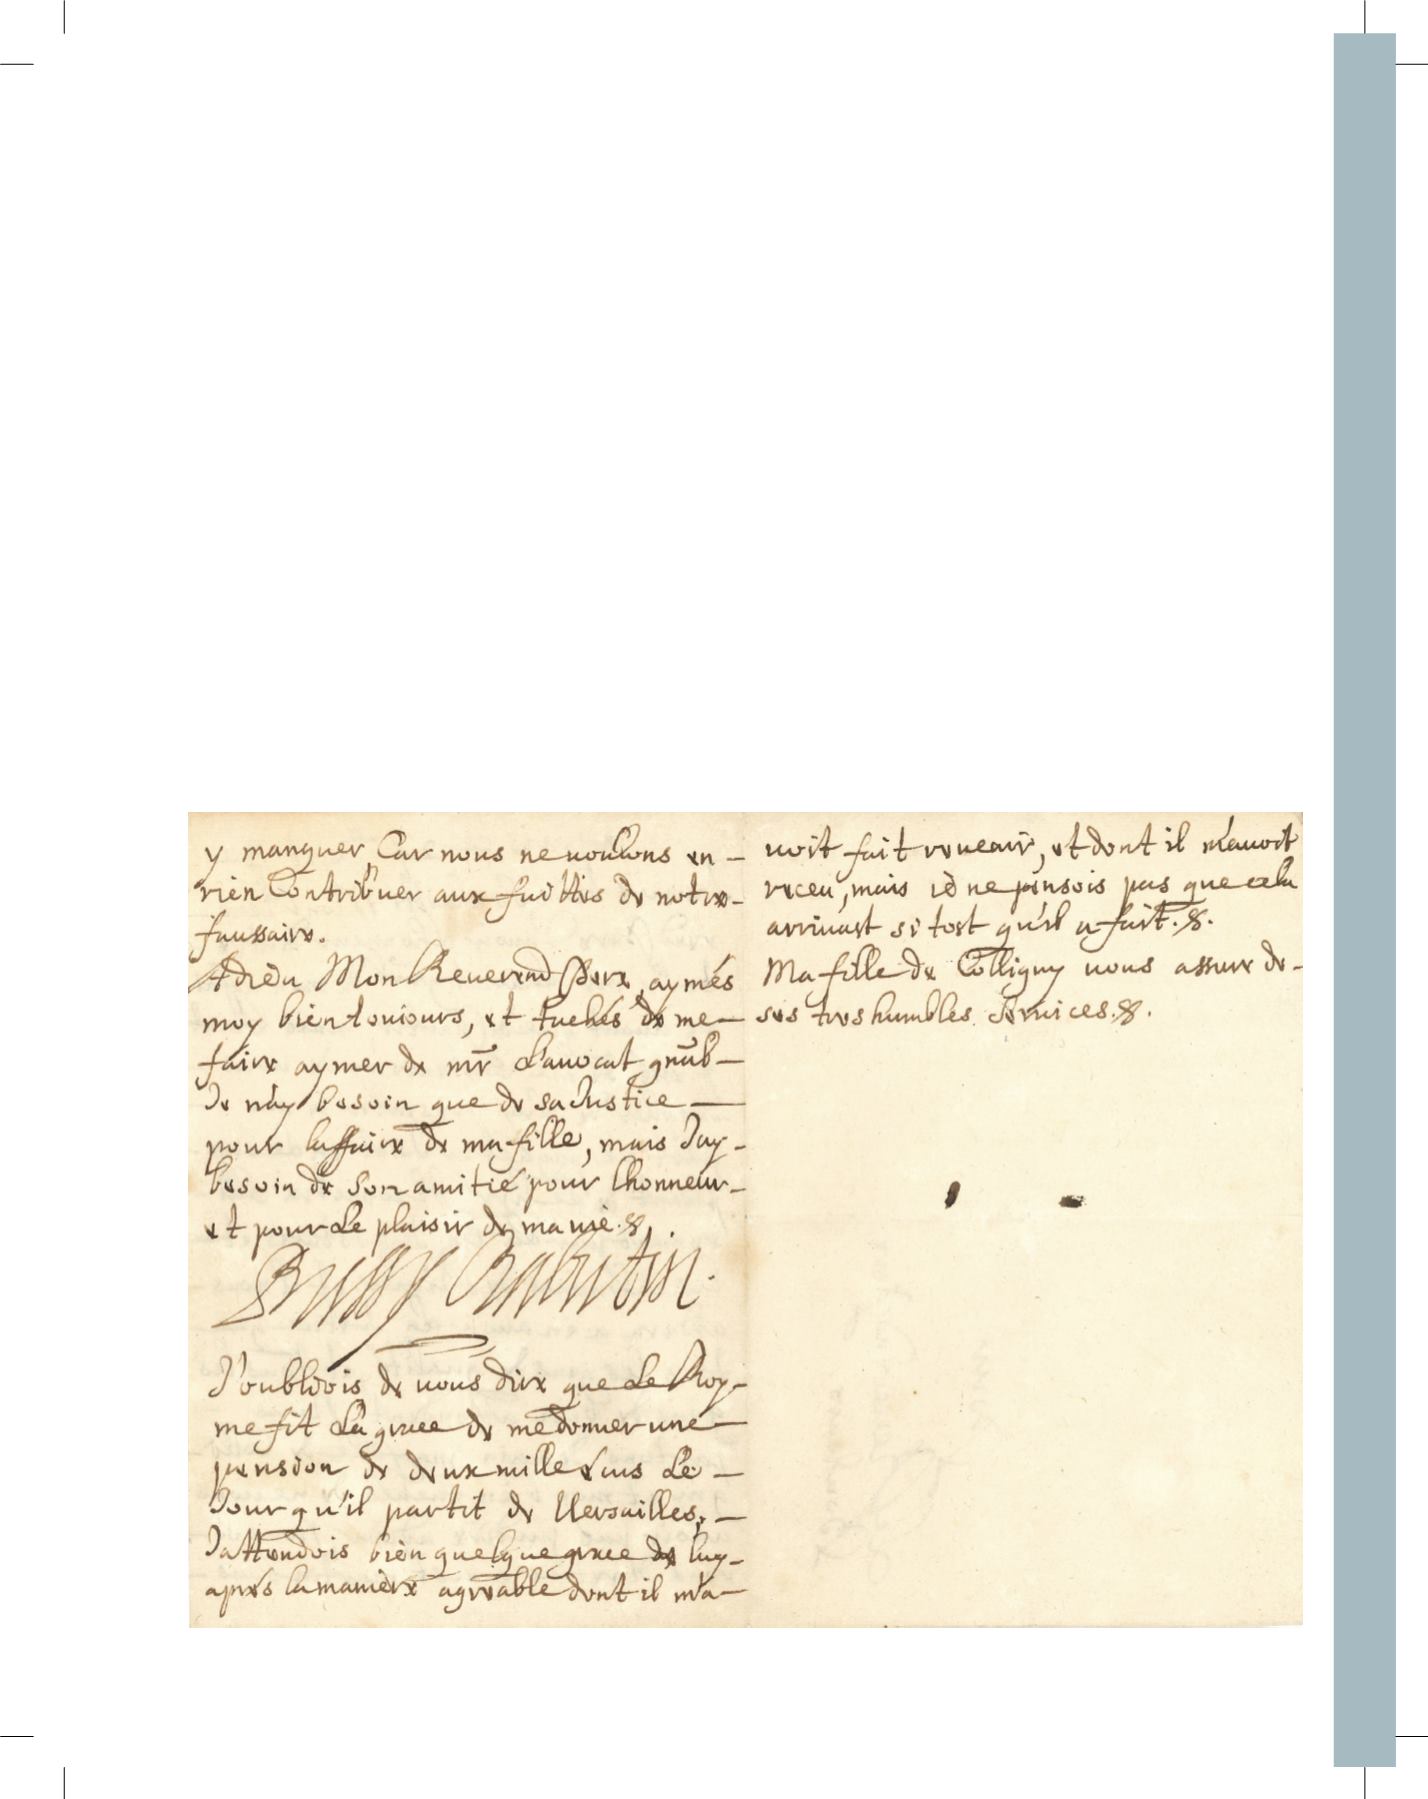 y manquer, Car nous ne voulons en –
rien Contribuer aux fuittes de notre –
faussaire.
Adieu Mon Reuerend Pere, aymés
moy bien touiours, et tachés de me –
faire aymer de mr L'auocat gnãl –
Je n'ay besoin que de sa Justice —
pour laffaire de ma fille, mais Jay –
besoin de Son amitié pour lhonneur –
et pour Le plaisir de ma vie. &.
Bussy Rabutin.
J'oubliois de vous dire que Le Roy –
me fit La grace de me donner une –
pension de deux mille Escus Le –
Jour qu'il partit de Versailles, –
Jattendois bien quelque grace de luy –
aprés la maniere agreable dont il m'a –
uoit fait reuenir, et dont il m'auoit
receu, mais ie ne pensois pas que cela
arriuast si tost qu'il a fait. &.
Ma fille de Colligny vous assure de –
ses tres humbles Seruices. &.